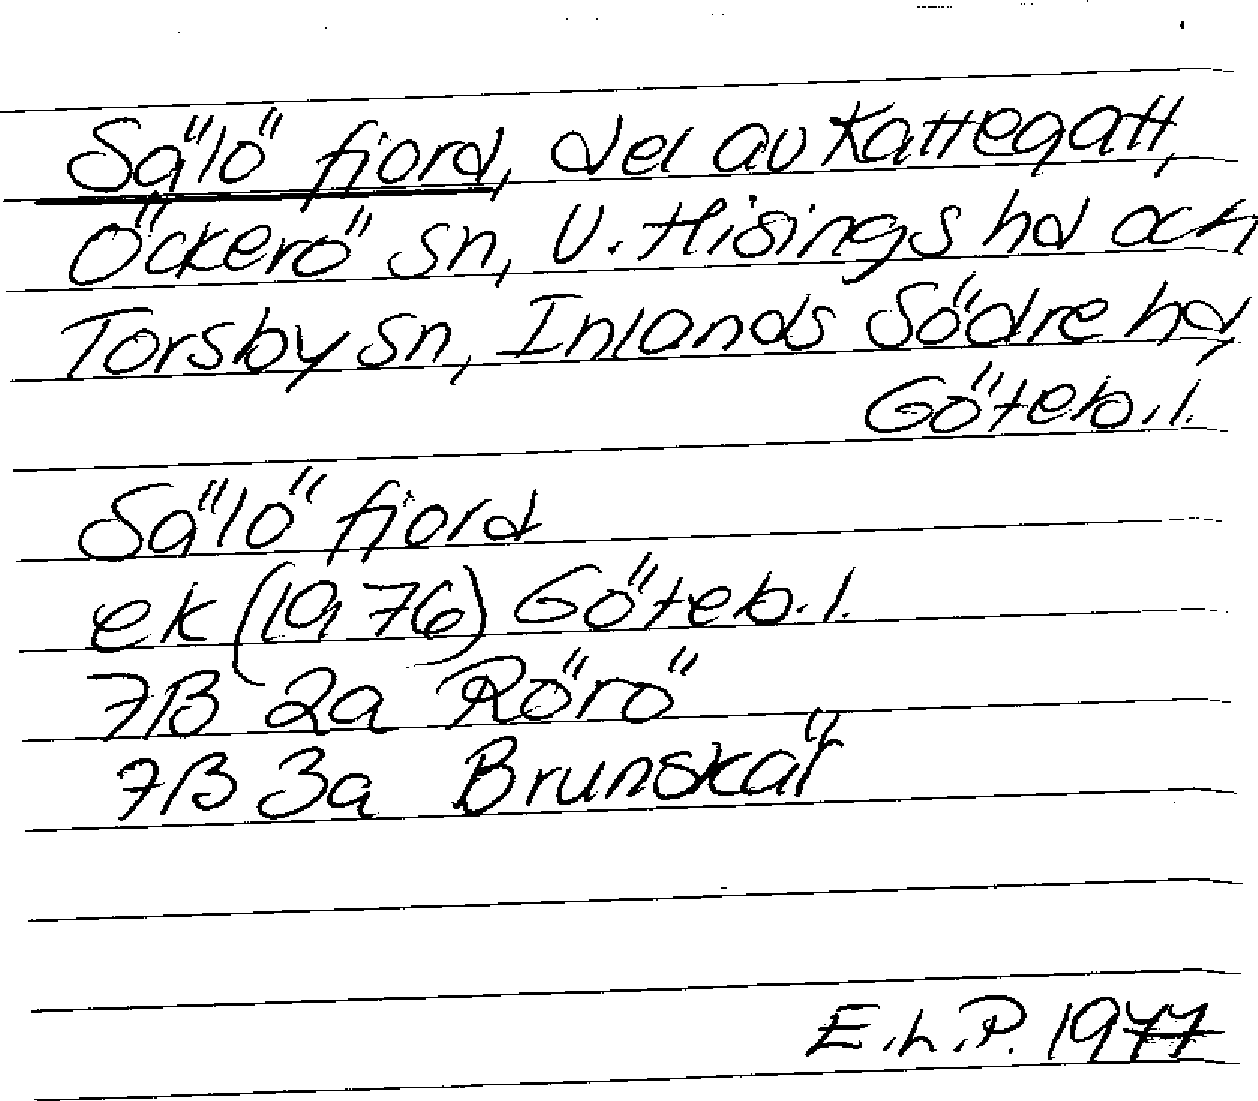 Sälö fjord, del av Kattegatt,
Öckerö sn, V. Hisings hd och
Torsby sn, Inlands Södre hd,
Göteb. l.
Sälö fjord
ek (1976) Göteb. l.
7B 2a Rörö
7B 3a Brunskär
E.L.P. 1977